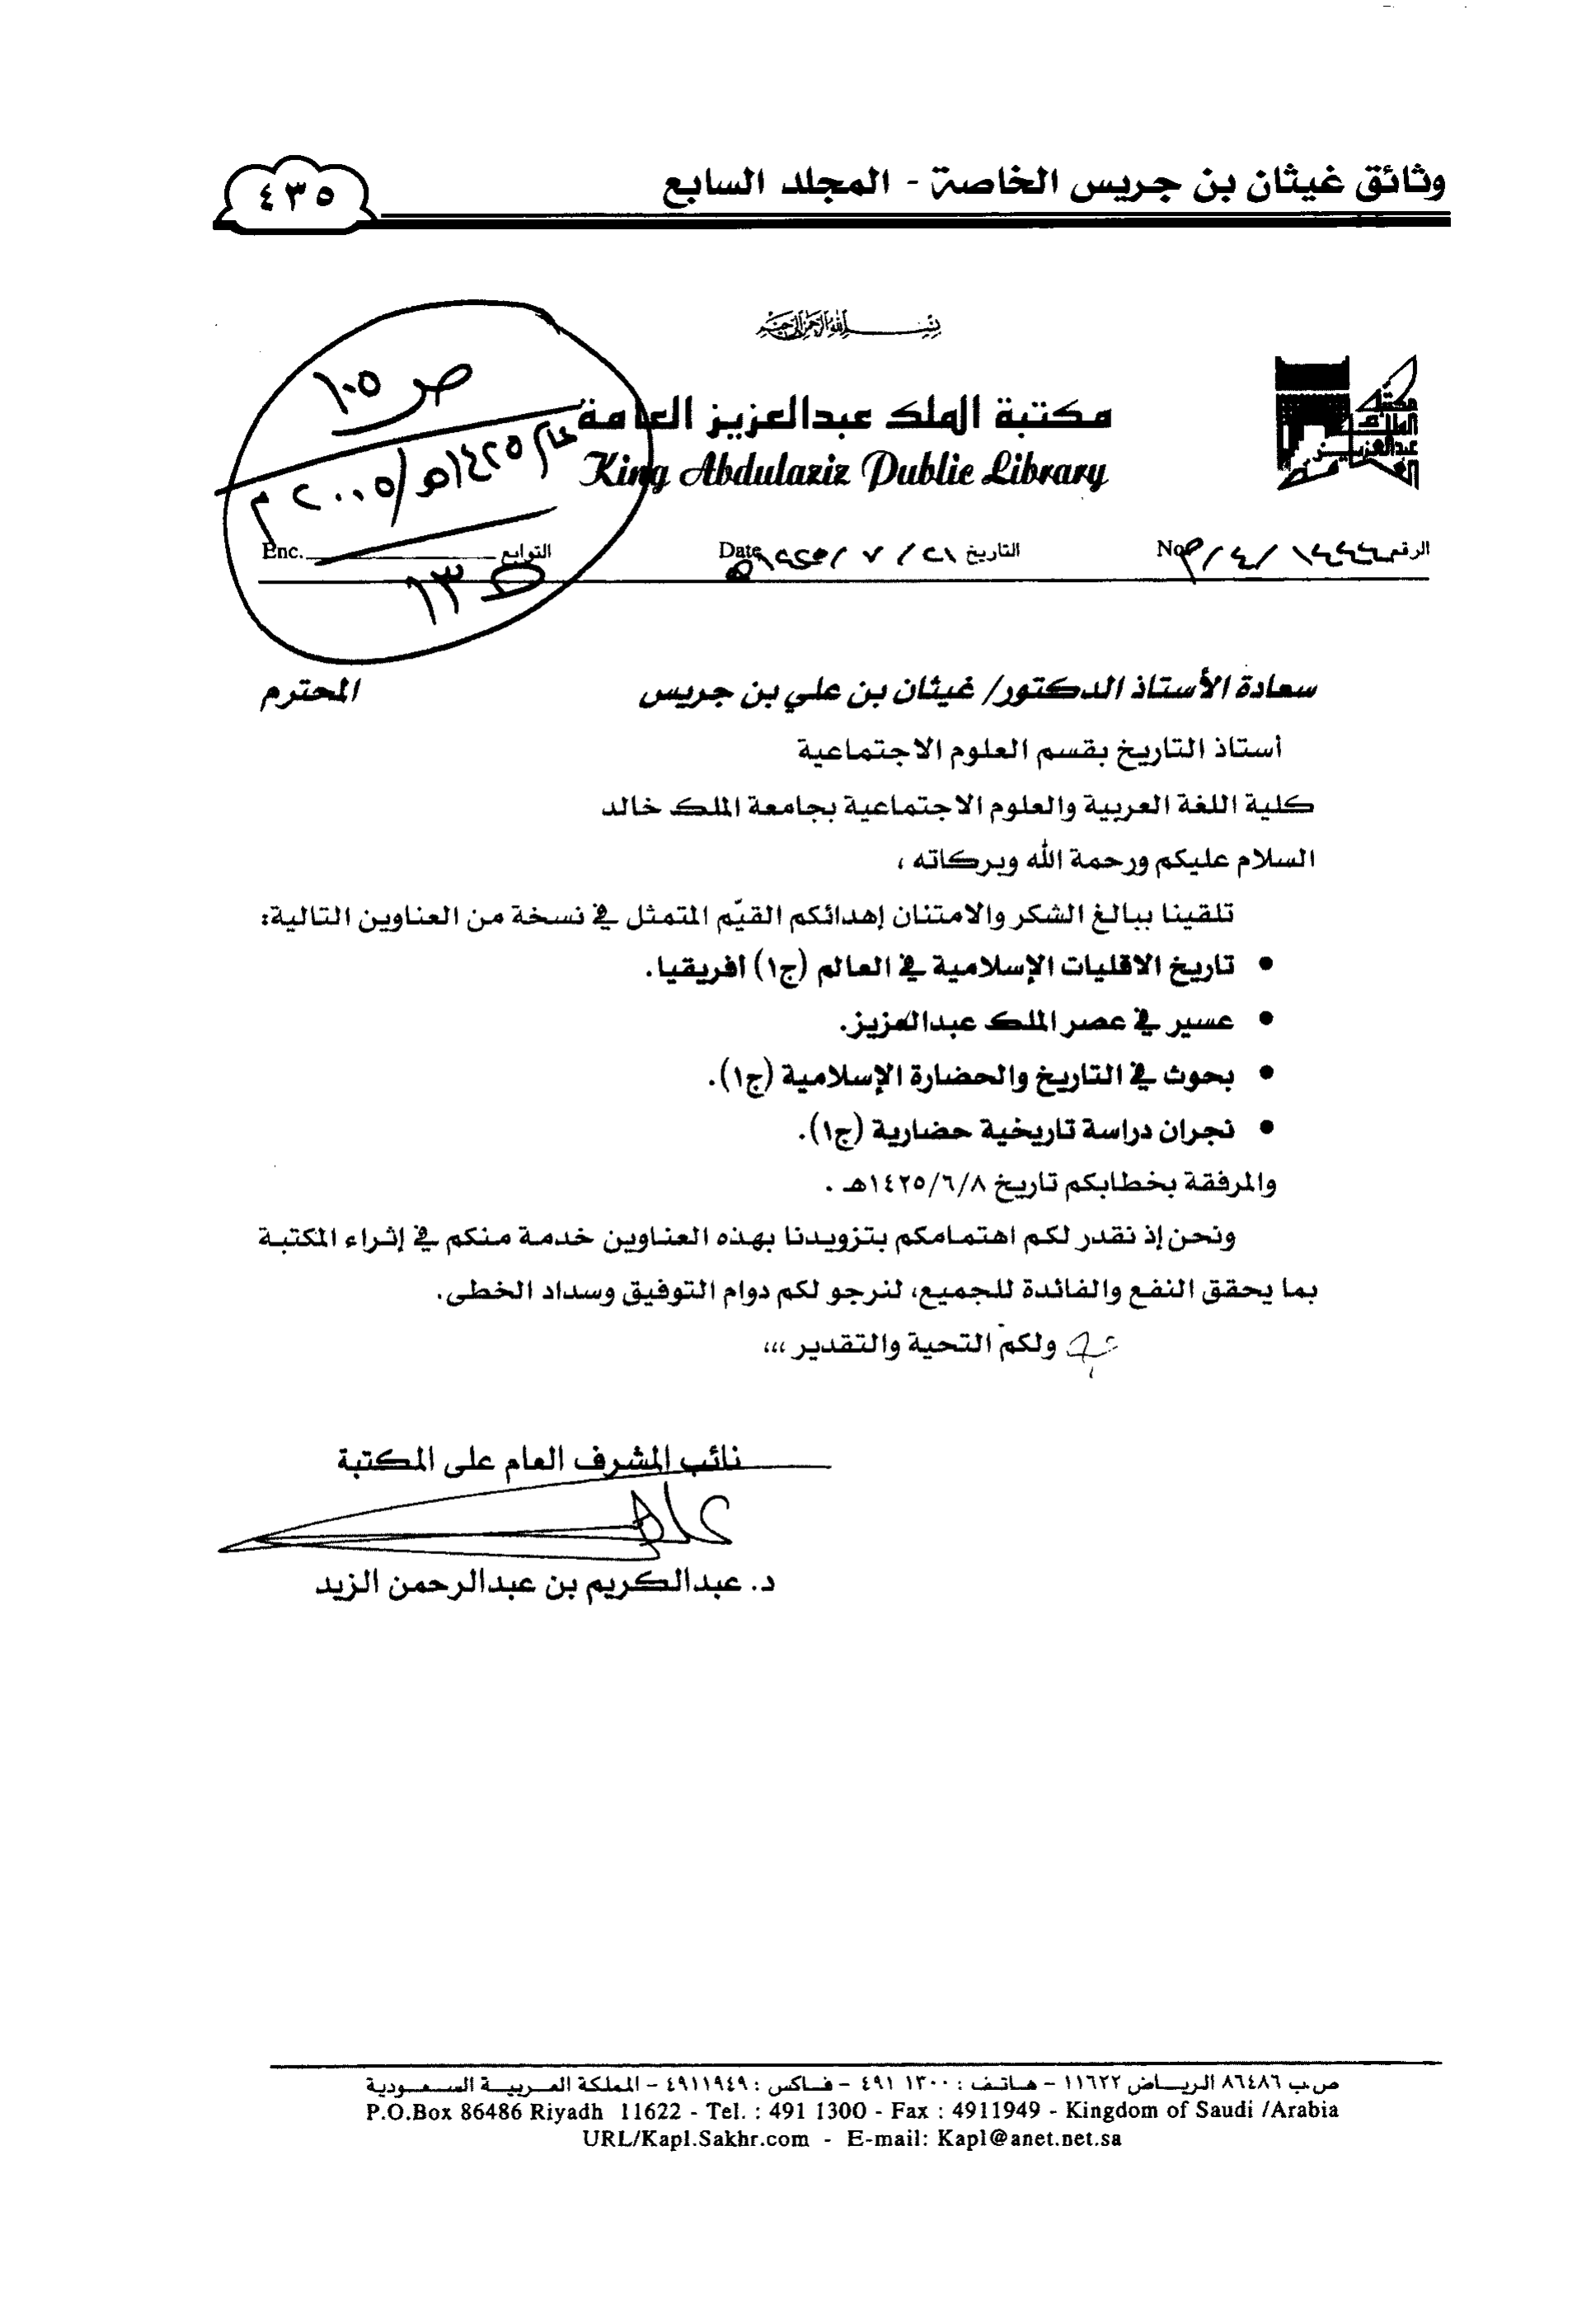 وثائق غيثان بن جريس الخاصة - المجلد السابع
٤٣٥
بسم الله الرحمن الرحيم
مكتبة الملك عبدالعزيز العامة
King Abdulaziz Public Library
مكتبة الملك عبدالعزيز العامة
ص ١٠٥
١٤٢٥هـ/٢٠٠٥م
ص ١٣
الرقم No.
التاريخ ٢١/ ٧ /١٤٢٥هـ Date
التوابع Enc.
سعادة الأستاذ الدكتور/ غيثان بن علي بن جريس المحترم
أستاذ التاريخ بقسم العلوم الاجتماعية
كلية اللغة العربية والعلوم الاجتماعية بجامعة الملك خالد
السلام عليكم ورحمة الله وبركاته ،
تلقينا ببالغ الشكر والامتنان إهدائكم القيّم المتمثل في نسخة من العناوين التالية:
• تاريخ الاقليات الإسلامية في العالم (ج١) افريقيا.
• عسير في عصر الملك عبدالعزيز.
• بحوث في التاريخ والحضارة الإسلامية (ج١).
• نجران دراسة تاريخية حضارية (ج١).
والمرفقة بخطابكم تاريخ ١٤٢٥/٦/٨هـ .
ونحن إذ نقدر لكم اهتمامكم بتزويدنا بهذه العناوين خدمة منكم في إثراء المكتبة
بما يحقق النفع والفائدة للجميع، لنرجو لكم دوام التوفيق وسداد الخطى.
ولكم التحية والتقدير ،،،
نائب المشرف العام على المكتبة
د. عبدالكريم بن عبدالرحمن الزيد
ص.ب ٨٦٤٨٦ الريـاض ١١٦٢٢ - هـاتـف : ١٣٠٠ ٤٩١ - فـاكس : ٤٩١١٩٤٩ - المملكة العـربيـة السـعـودية
P.O.Box 86486 Riyadh 11622 - Tel. : 491 1300 - Fax : 4911949 - Kingdom of Saudi /Arabia
URL/Kapl.Sakhr.com - E-mail: Kapl@anet.net.sa